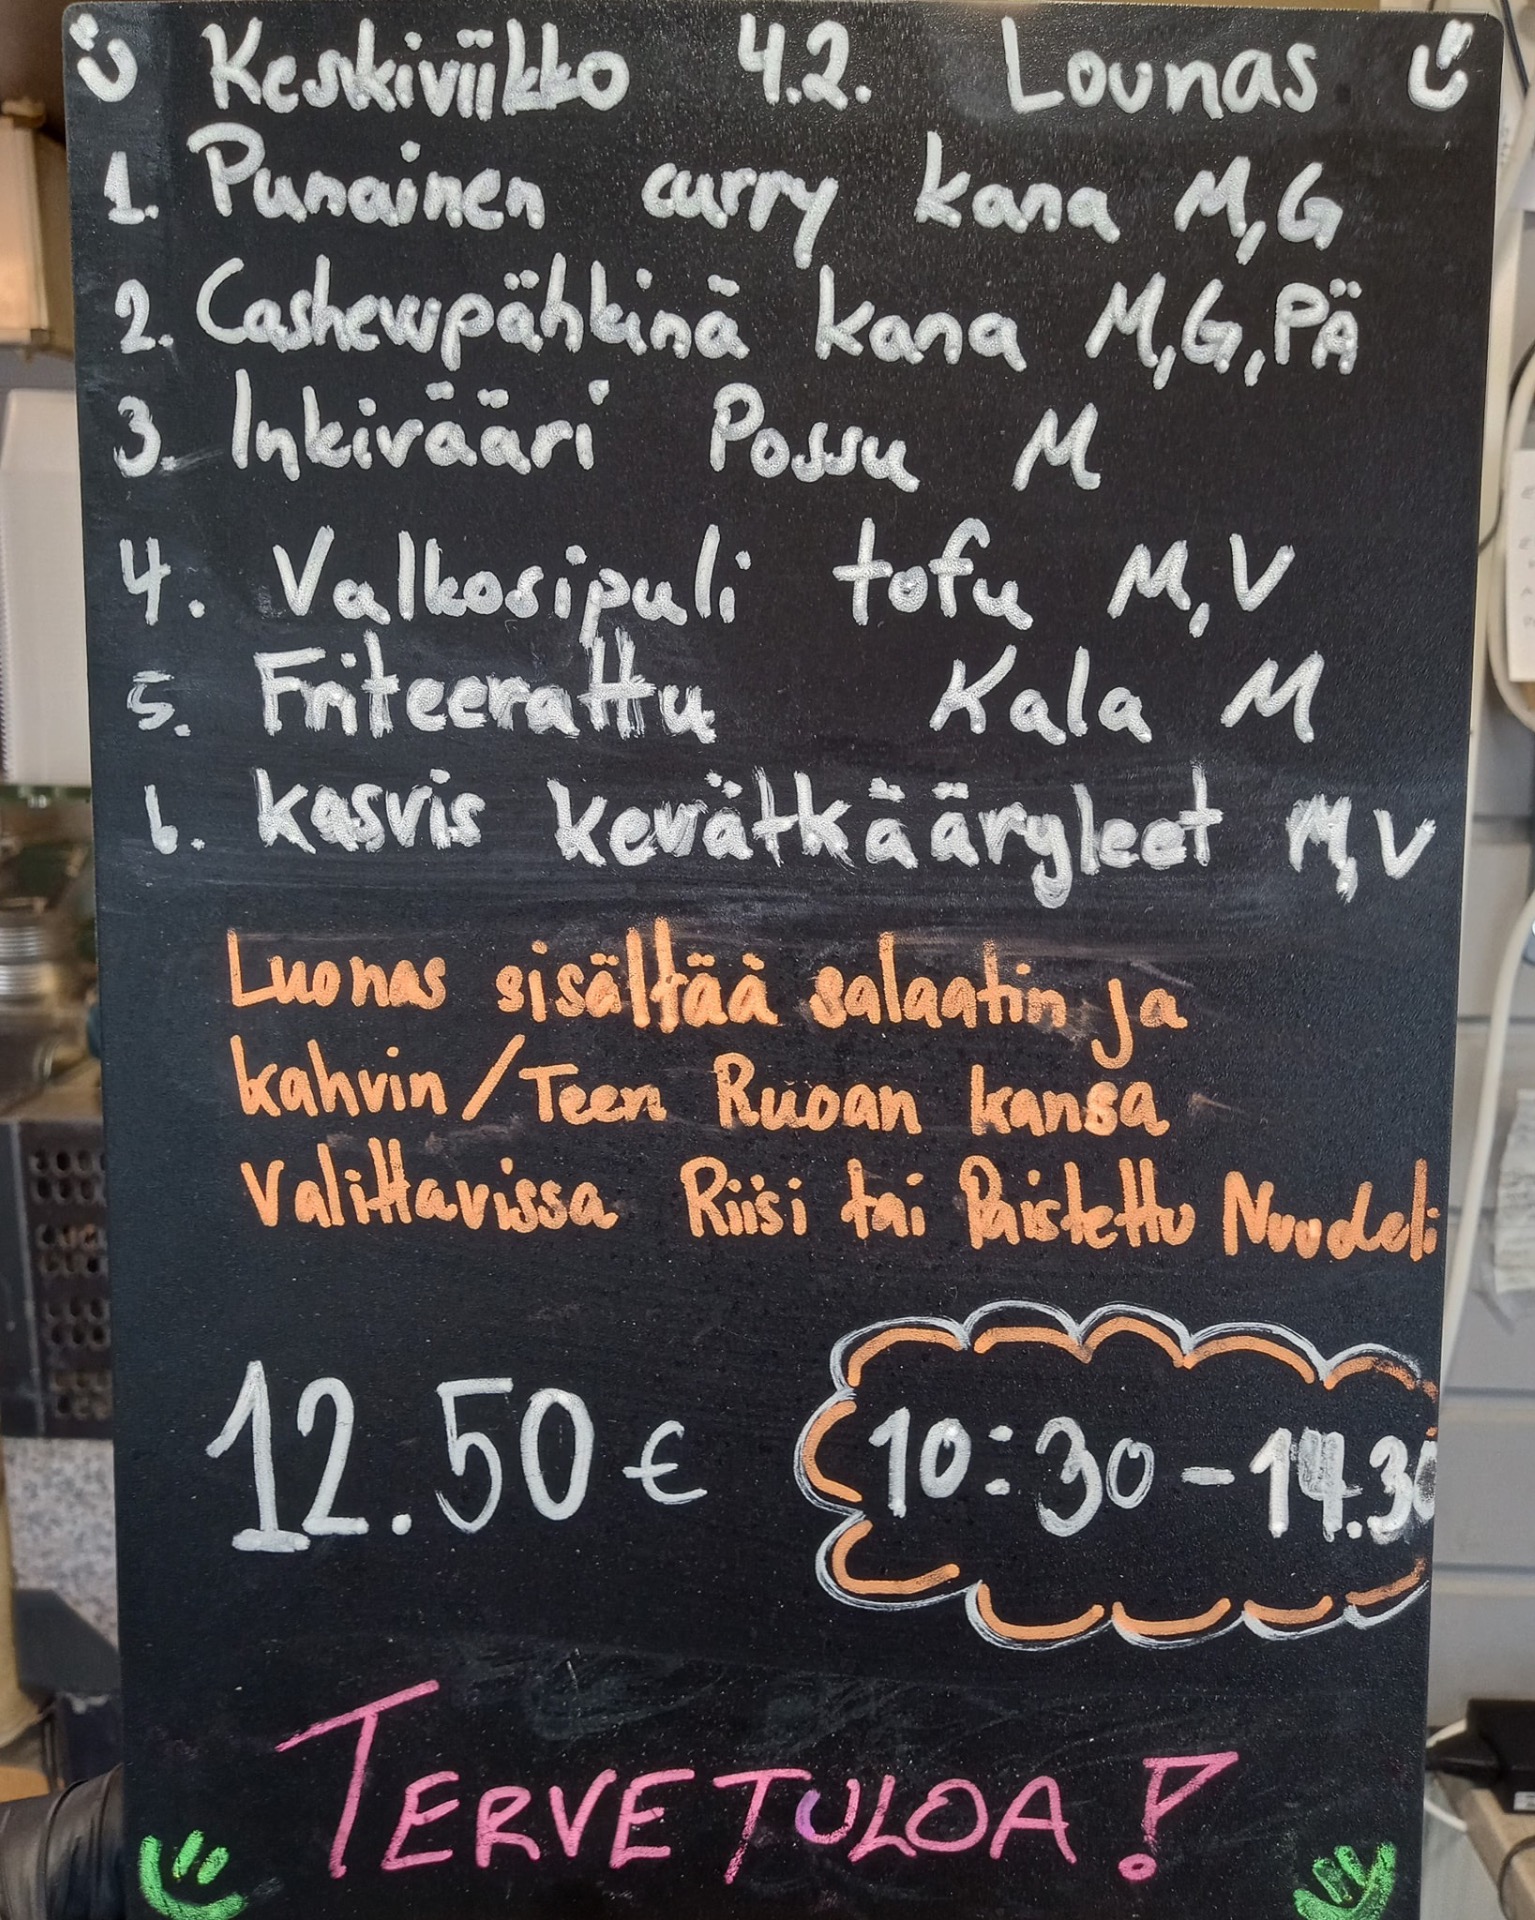 Keskiviikko 4.2. Lounas
1. Punainen curry kana M,G
2. Cashewpähkinä kana M,G,PÄ
3. Inkivääri Possu M
4. Valkosipuli tofu M,V
5. Friteerattu Kala M
6. kasvis kevätkääryleet M,V
Luonas sisältää salaatin ja
kahvin/Teen Ruoan kansa
Valittavissa Riisi tai Paistettu Nuudeli
12.50€ 10:30-14.30
TERVETULOA!